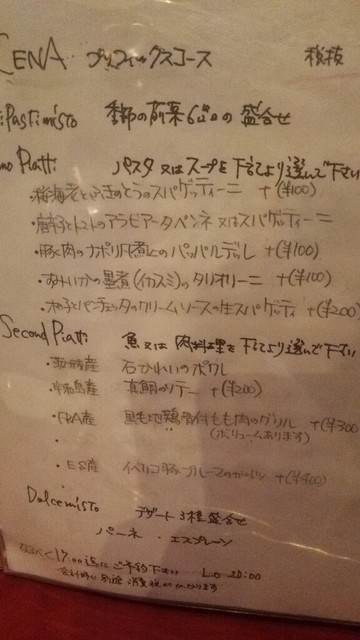 CENA プリフィックスコース 税抜
Antipasti misto 季節の前菜6品の盛合せ
Primo Piatti パスタ又はスープを下記より選んで下さい
・桜海老とふきのとうのスパゲッティーニ +(¥100)
・唐辛子とトマトのアラビアータペンネ又はスパゲティーニ
・豚肉のナポリ風煮込のパッパルデッレ +(¥100)
・あおりいかの墨煮(イカスミ)のタリオリーニ +(¥100)
パンチェッタのクリームソースの生スパゲッティ +(¥200)
Second Piatti 魚又は肉料理を下記より選んで下さい
産 石かれいのポワレ
・宇和島産 真鯛のソテー +(¥200)
・FRA産 黒毛地鶏骨付もも肉のグリル +(¥300)
(ボリュームあります)
・ES産 イベリコ豚 +(¥400)
Dolce misto デザート3種盛合せ
パーネ ・エスプレッソ
なるべく17:00迄にご予約下さい L.O 20:00
別途消費税がかかります